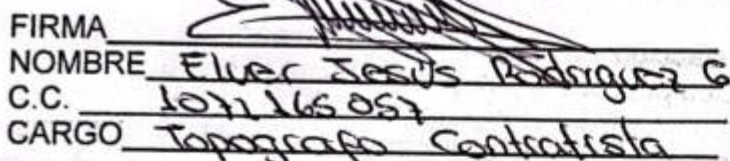 FIRMA
NOMBRE Elver Jesús Rodriguez G
C.C. 1071165057
CARGO Topografo Contratista